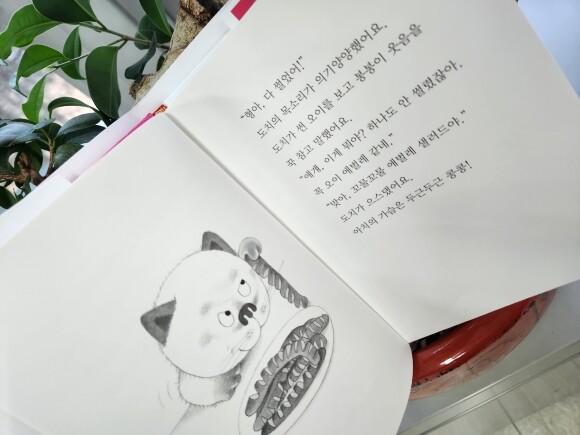 "형아, 다 썰었어!"
도치의 목소리가 의기양양했어요.
도치가 썬 오이를 보고 봉봉이 웃음을
꾹 참고 말했어요.
"에개, 이게 뭐야? 하나도 안 썰렸잖아.
꼭 오이 애벌레 같네."
"맞아, 꼬물꼬물 애벌레 샐러드야."
도치가 으스댔어요.
아치의 가슴은 두근두근 콩콩!